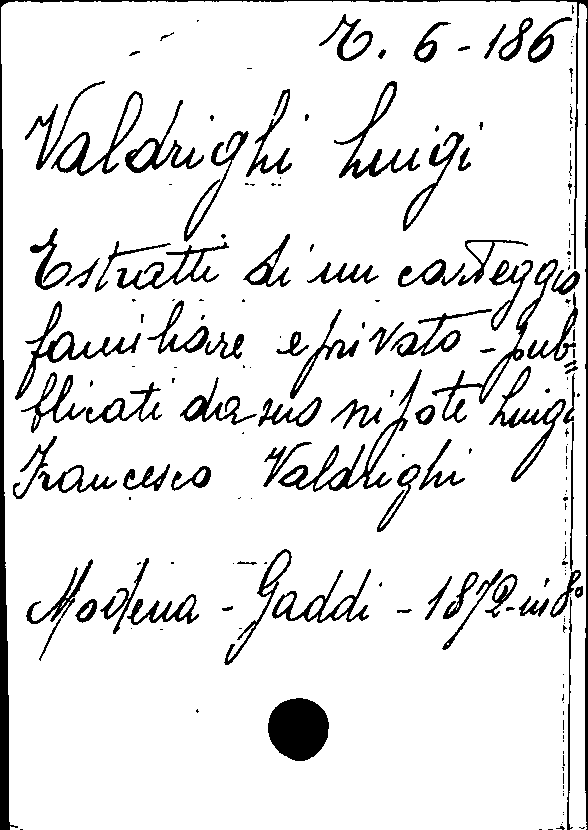 T. 6-186
Valdrighi Luigi
Estratti di un carteggio
familiare e privato - pub=
blicati da suo nipote Luigi
Francesco Valdrighi
Modena - Gaddi - 1872 - in 8°